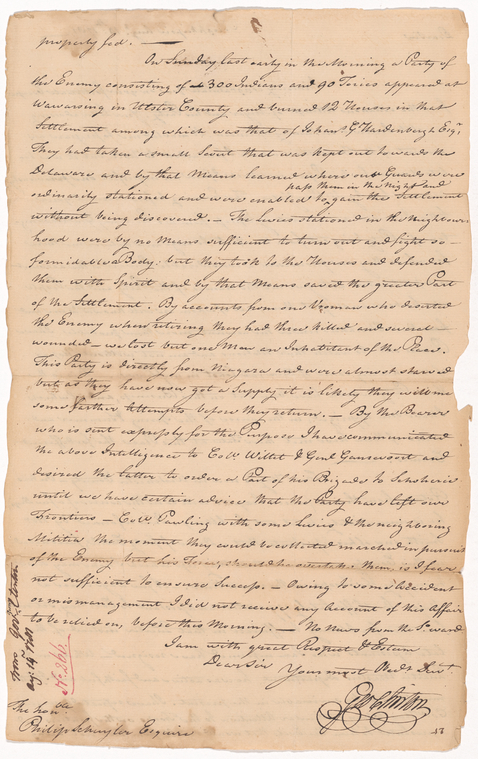 property fed. —
On Sunday last early in the Morning a Party of
the Enemy consisting of 300 Indians and 90 Tories appeared at
Wawarsing in Ulster County and burned 12 Houses in that
Settlement among which was that of Johans. G. Hardenbergh Esqr.
They had taken a small Scout that was kept out towards the
Delaware and by that Means learned where our Guards were
pass them in the Night and
ordinarily stationed and were enabled to gain the Settlement
without being discovered. — The Levies stationed in the Neighbour
hood were by no Means sufficient to turn out and fight so
formidable a Body; but they took to the Houses and defended
them with Spirit and by that Means saved the greater Part
of the Settlement. By accounts from one Vrooman who deserted
the Enemy when retiring they had three killed and several
wounded — we lost but one Man an Inhabitant of the Place.
This Party is directly from Niagara and were almost starved
but as they have now got a Supply it is likely they will me
some farther Attempts before they return. — By the Bearer
who is sent expressly for the Purpose I have communicated
the above Intelligence to Colo. Willet & Genl Gansevoort and
desired the latter to order a Part of his Brigade to Schoharie
until we have certain advice that the Party have left our
Frontiers — Colo. Pawling with some Levies & the neighboring
Militia the moment they could be collected marched in pursuit
of the Enemy but his Force, should he overtake them, is I fear
not sufficient to ensure Success. — Owing to some Accident
or mismanagement I did not receive any Account of this Affair
to be relied on, before this Morning. — No News from the So. ward
I am with great Respect & Esteem
Dear Sir
Your most Obedt Servt.
Geo Clinton
The honble
Philip Schuyler Esquire
17
from Govr. Clinton
Aug. 14th 1781
No. 266.